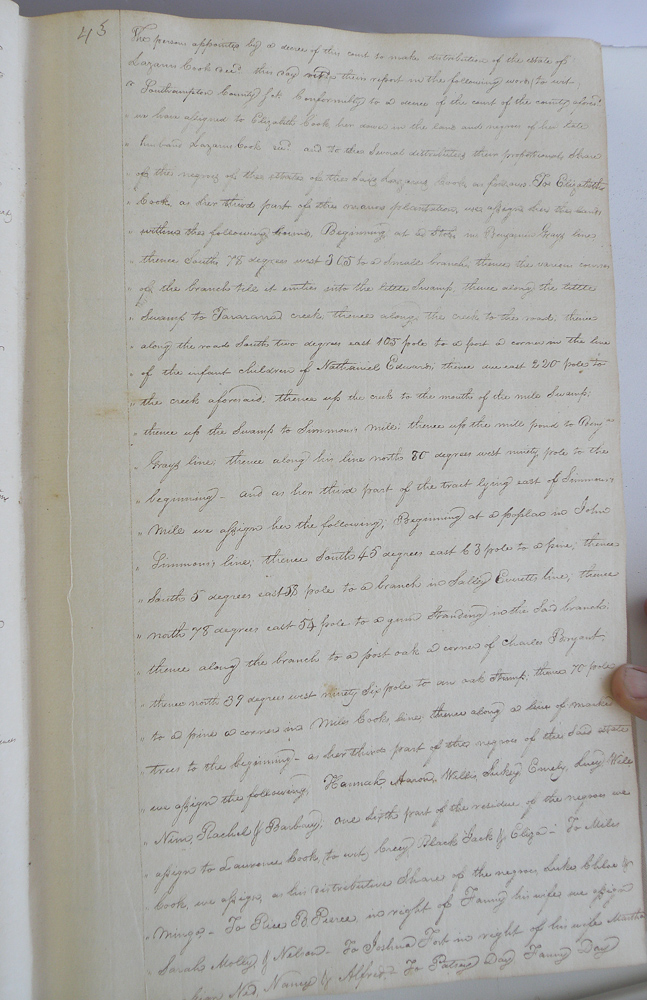 43
The persons appointed by a decree of this court to make distribution of the estate of
Lazarus Cook decd. this day made their report in the following words, to wit,
" Southampton County Sct. Conformably to a decree of the court of the county aforesd.
" we have assigned to Elizabeth Cook her dower in the land and negroes of her late
" husband Lazarus Cook decd. and to the several distributees their proportional share
" of the negroes of the estate of the said Lazarus Cook as follows. To Elizabeth
" Cook, as her third part of the plantation, we assign her the lands
" within the following bounds, Beginning at a stake in Benjamin Grays line
" thence South 78 degrees west 365 to a small branch, thence the various courses
" of the branch till it enters into the little Swamp, thence along the little
" Swamp to Tararara creek, thence along the creek to the road, thence
" along the road South two degrees east 165 pole to a post a corner in the line
" of the infant children of Nathaniel Edwards, thence due east 220 pole to
" the creek aforesaid, thence up the creek to the mouth of the mill Swamp;
" thence up the Swamp to Simmons's mill; thence up the mill pond to Benj.
" Grays line, thence along his line north 80 degrees west ninety pole to the
" beginning - and as her third part of the tract lying east of Simmons's
" Mill we assign her the following, Beginning at a poplar in John
" Simmons's line, thence South 45 degrees east 63 pole to a pine, thence
" South 5 degrees east 58 pole to a branch in Salley Everetts line, thence
" north 78 degrees east 54 pole to a gum standing in the said branch;
" thence along the branch to a post oak a corner of Charles Bryant,
" thence north 39 degrees west ninety six pole to an oak Stump, thence 70 pole
" to a pine a corner in Miles Cooks line, thence along a line of marked
" trees to the beginning - as her third part of the negroes of the said estate
" we assign the following, Hannah Aaron, Willis, Suckey Emely, Lucy Will
" Nim, Rachel & Barbary; one sixth part of the residue of the negroes we
" assign to Laurence Cook, to wit, Creey, Black Jack & Eliza - To Miles
" Cook, we assign, as his distributive Share of the negroes, Luke Chloe &
" Mingo - To Price B Pierce, in right of Fanny his wife we assign
" Sarah Moley & Nelson - To Joshua Fort in right of his wife Martha
Ned, Nancy & Alfred - To Patsey Day, Fanny Day